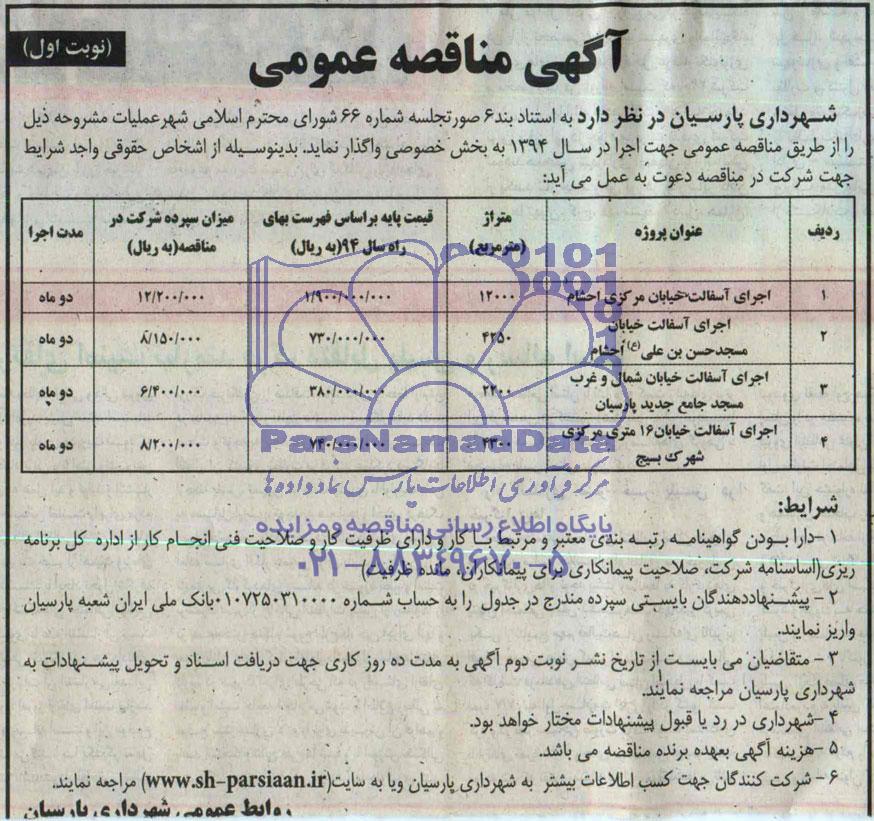 (نوبت اول)
آگهی مناقصه عمومی
شهرداری پارسیان در نظر دارد به استناد بند۶ صورتجلسه شماره ۶۶ شورای محترم اسلامی شهرعملیات مشروحه ذیل
را از طریق مناقصه عمومی جهت اجرا در سال ۱۳۹۴ به بخش خصوصی واگذار نماید. بدینوسیله از اشخاص حقوقی واجد شرایط
جهت شرکت در مناقصه دعوت به عمل می آید:
ردیف عنوان پروژه متراژ (مترمربع) قیمت پایه براساس فهرست بهای راه سال ۹۴(به ریال) میزان سپرده شرکت در مناقصه(به ریال) مدت اجرا
۱ اجرای آسفالت خیابان مرکزی احشام ۱۲۰۰۰ ۱/۹۰۰/۰۰۰/۰۰۰ ۱۲/۲۰۰/۰۰۰ دو ماه
۲ اجرای آسفالت خیابان مسجدحسن بن علی(ع) احشام ۴۲۵۰ ۷۳۰/۰۰۰/۰۰۰ ۸/۱۵۰/۰۰۰ دو ماه
۳ اجرای آسفالت خیابان شمال و غرب مسجد جامع جدید پارسیان ۲۲۰۰ ۳۸۰/۰۰۰/۰۰۰ ۶/۴۰۰/۰۰۰ دو ماه
۴ اجرای آسفالت خیابان۱۶ متری مرکزی شهرک بسیج ۴۳۰۰ ۷۴۰/۰۰۰/۰۰۰ ۸/۲۰۰/۰۰۰ دو ماه
ParsNamadData
مرکز فرآوری اطلاعات پارس نماد داده ها
پایگاه اطلاع رسانی مناقصه و مزایده
۰۲۱-۸۸۳۴۹۶۷۰-۵
شرایط:
۱-دارا بودن گواهینامه رتبه بندی معتبر و مرتبط با کار و دارای ظرفیت کار و صلاحیت فنی انجام کار از اداره کل برنامه
ریزی(اساسنامه شرکت، صلاحیت پیمانکاری برای پیمانکاران، مانده ظرفیت)
۲- پیشنهاددهندگان بایستی سپرده مندرج در جدول را به حساب شماره ۰۱۰۷۲۵۰۳۱۰۰۰۰بانک ملی ایران شعبه پارسیان
واریز نمایند.
۳- متقاضیان می بایست از تاریخ نشر نوبت دوم آگهی به مدت ده روز کاری جهت دریافت اسناد و تحویل پیشنهادات به
شهرداری پارسیان مراجعه نمایند.
۴-شهرداری در رد یا قبول پیشنهادات مختار خواهد بود.
۵-هزینه آگهی بعهده برنده مناقصه می باشد.
۶- شرکت کنندگان جهت کسب اطلاعات بیشتر به شهرداری پارسیان ویا به سایت(www.sh-parsiaan.ir) مراجعه نمایند.
روابط عمومی شهرداری پارسیان